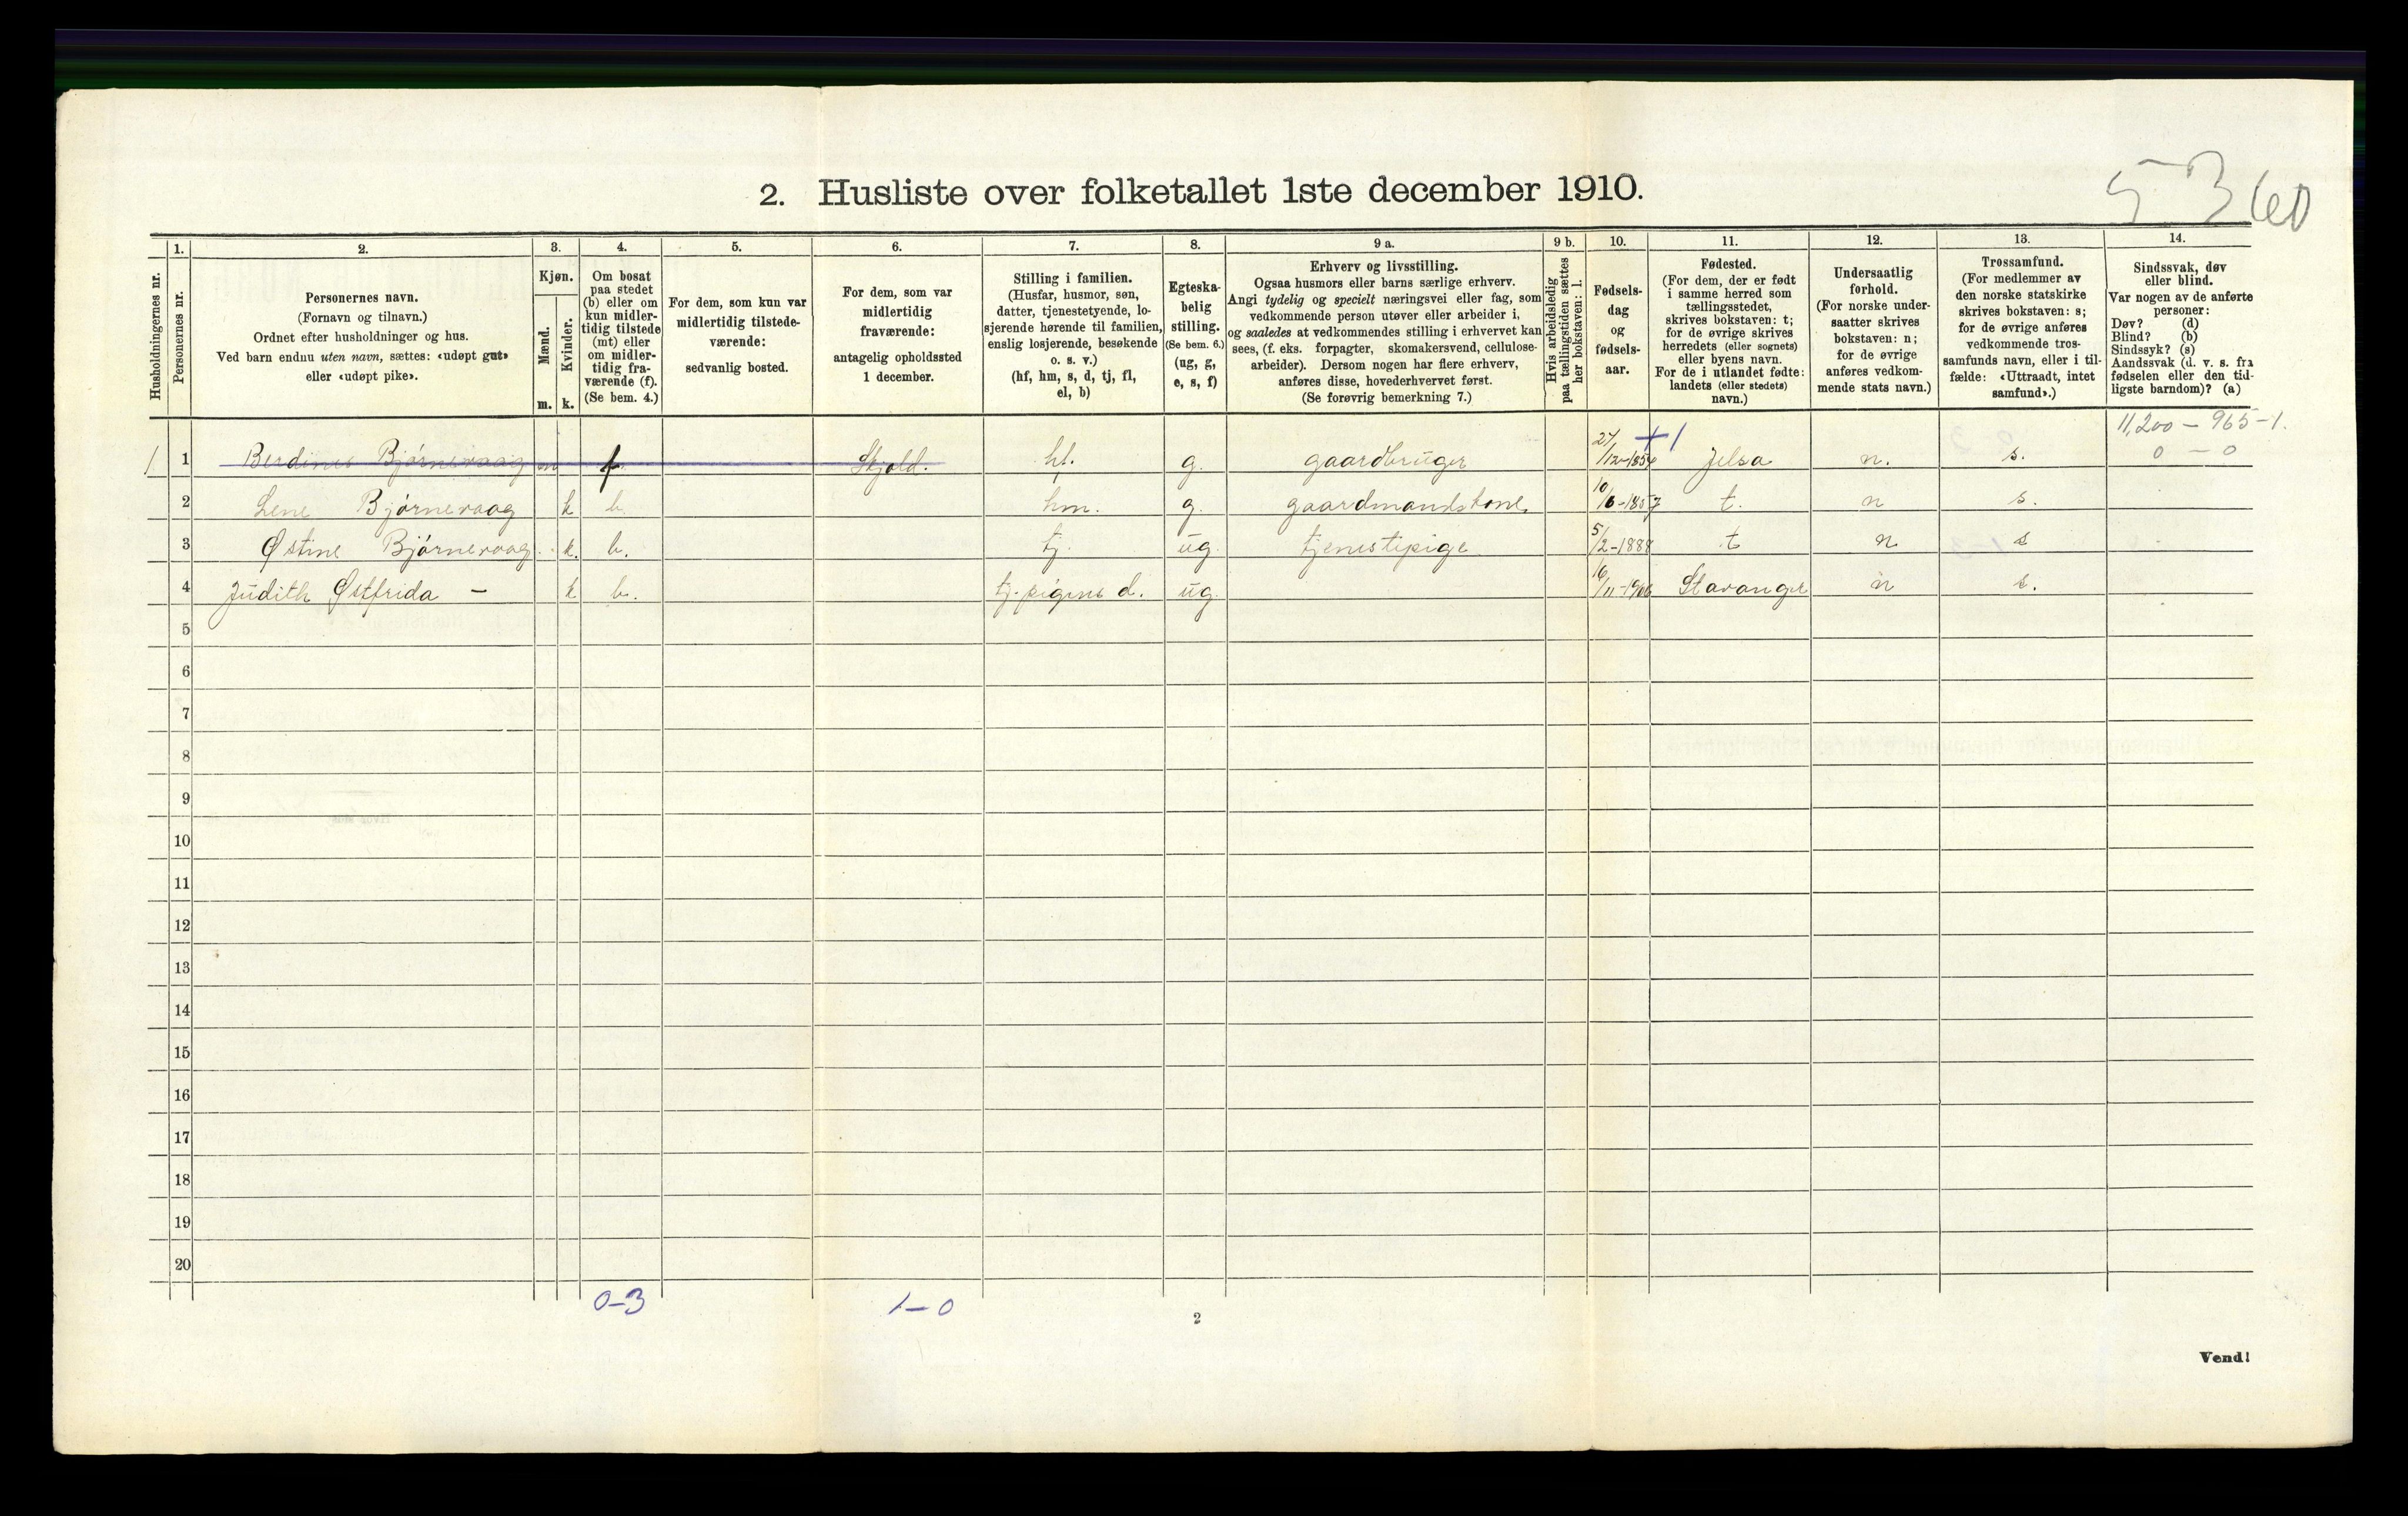 5360
2. Husliste over folketallet 1ste december 1910.
1. 2. 3. 4. 5. 6. 7. 8. 9 a. 9 b. 10. 11. 12. 13. 14.
Husholdningernes nr.
Personernes nr.
Personernes navn.
(Fornavn og tilnavn.)
Ordnet efter husholdninger og hus.
Ved barn endnu uten navn, sættes: «udøpt gut»
eller «udøpt pike».
Kjøn.
Mænd.
Kvinder.
m. k.
Om bosat
paa stedet
(b) eller om
kun midler-
tidig tilstede
(mt) eller
om midler-
tidig fra-
værende (f).
(Se bem. 4.)
For dem, som kun var
midlertidig tilstede-
værende:
sedvanlig bosted.
For dem, som var
midlertidig
fraværende:
antagelig opholdssted
1 december.
Stilling i familien.
(Husfar, husmor, søn,
datter, tjenestetyende, lo-
sjerende hørende til familien,
enslig losjerende, besøkende
o. s. v.)
(hf, hm, s, d, tj, fl,
el, b)
Egteska-
belig
stilling.
(Se bem. 6.)
(ug, g,
e, s, f)
Erhverv og livsstilling.
Ogsaa husmors eller barns særlige erhverv.
Angi tydelig og specielt næringsvei eller fag, som
vedkommende person utøver eller arbeider i,
og saaledes at vedkommendes stilling i erhvervet kan
sees, (f. eks. forpagter, skomakersvend, cellulose-
arbeider). Dersom nogen har flere erhverv,
anføres disse, hovederhvervet først.
(Se forøvrig bemerkning 7.)
Hvis arbeidsledig
paa tællingstiden sættes
her bokstaven: l.
Fødsels-
dag
og
fødsels-
aar.
Fødested.
(For dem, der er født
i samme herred som
tællingsstedet,
skrives bokstaven: t;
for de øvrige skrives
herredets (eller sognets)
eller byens navn.
For de i utlandet fødte:
landets (eller stedets)
navn.)
Undersaatlig
forhold.
(For norske under-
saatter skrives
bokstaven: n;
for de øvrige
anføres vedkom-
mende stats navn.)
Trossamfund.
(For medlemmer av
den norske statskirke
skrives bokstaven: s;
for de øvrige anføres
vedkommende tros-
samfunds navn, eller i til-
fælde: «Uttraadt, intet
samfund».)
Sindssvak, døv
eller blind.
Var nogen av de anførte
personer:
Døv? (d)
Blind? (b)
Sindssyk? (s)
Aandssvak (d. v. s. fra
fødselen eller den tid-
ligste barndom)? (a)
11,200 - 965-1.
1 1 Berdines Bjørnevaag m f Skjold. hf. g. gaardbruger 27/12-1854 +1 Jelsa n. s. 0 - 0
2 Lene Bjørnevaag k b. hm. g. gaardmandskone. 10/6-1857 t. n s.
3 Østine Bjørnevaag. k. b. tj. ug. tjenestepige 5/2-1888 t n s
4 Judith Østfrida - k b. tj. pigens d. ug. 16/11-1906 Stavanger n s.
5
6
7
8
9
10
11
12
13
14
15
16
17
18
19
20
0-3 1-0
2
Vend!